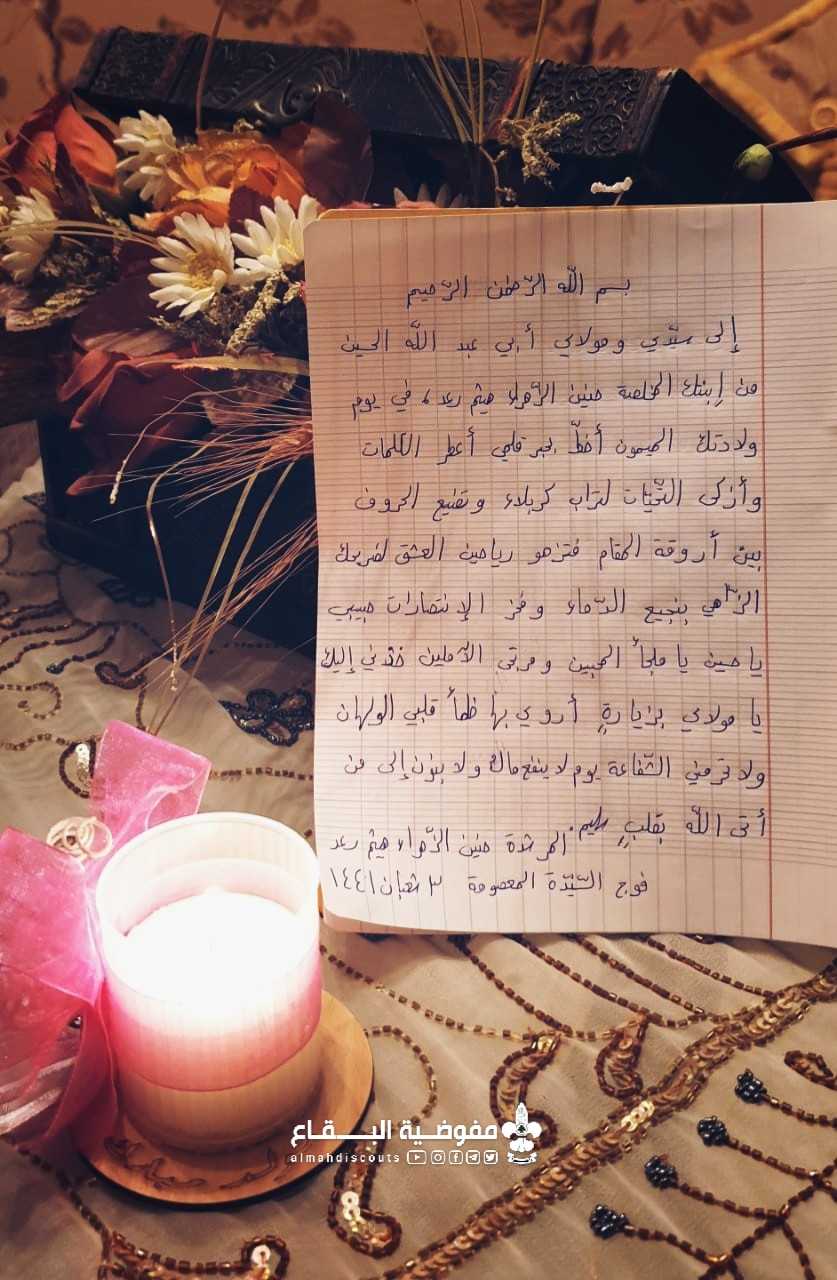 بسم اللّه الرّحمٰن الرّحيم
إلى سيّدي ومولاي أبي عبد اللّه الحسين
من إبنتك المخلصة حنين الزّهراء هيثم رعد، في يوم
ولادتك الميمون أخطّ بحبر قلمي أعطر الكلمات
وأزكى التحيّات لتراب كربلاء وتضيع الحروف
بين أروقة المقام فتزهو رياحين العشق لضريحك
الزّاهي بنجيع الدّماء وفخر الإنتصارات حبيبي
يا حسين يا ملجأ المحبين ومرتجى الآملين خذني إليك
يا مولاي بزيارةٍ أروي بها ظمأ قلبي الولهان
ولا تحرمني الشّفاعة يوم لا ينفع مالٌ ولا بنون إلى من
أتى اللّه بقلبٍ سليم.
المرشدة حنين الزّهراء هيثم رعد
فوج السّيّدة المعصومة ٣ شعبان ١٤٤١
مفوضية البقاع
almahdiscouts